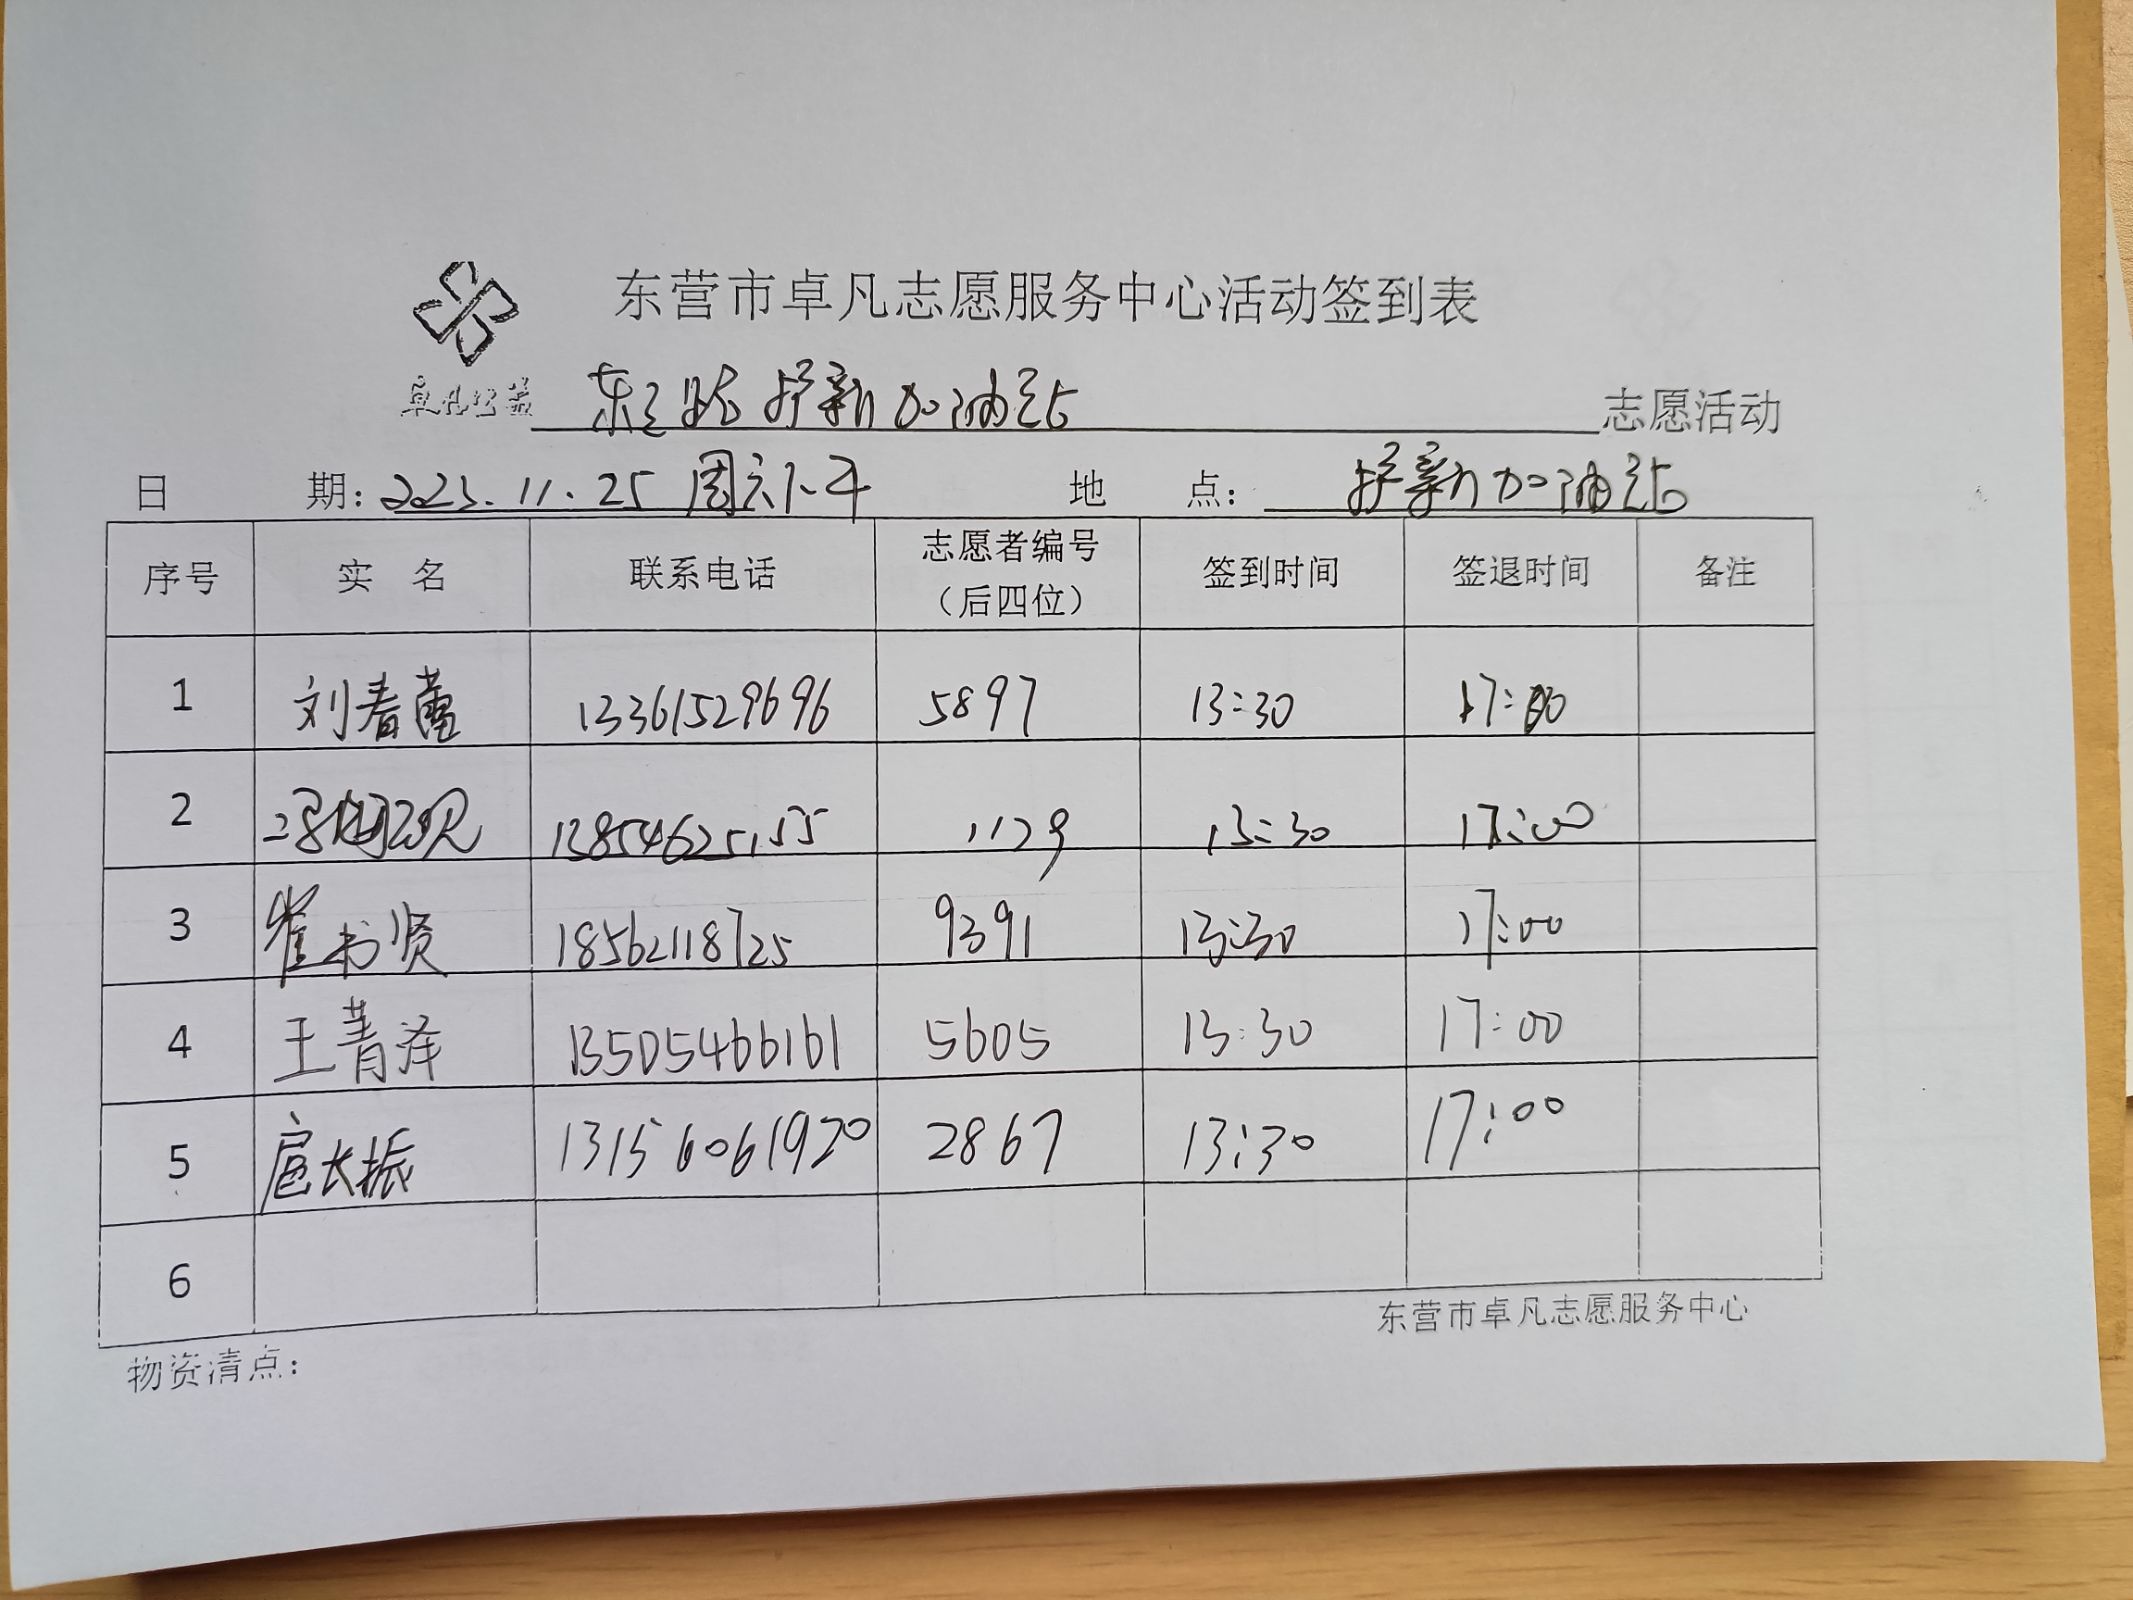 东营市卓凡志愿服务中心活动签到表
卓凡公益 东三路护新加油站 志愿活动
日 期: 2023.11.25 周六下午 地 点: 护新加油站
序号 实 名 联系电话 志愿者编号(后四位) 签到时间 签退时间 备注
1 刘春蕾 13361529696 5897 13:30 17:00
2 13854625155 1129 13:30 17:00
3 崔书贤 18562118725 9391 13:30 17:00
4 王菁泽 13505466161 5605 13:30 17:00
5 扈长振 13156061920 2867 13:30 17:00
6
东营市卓凡志愿服务中心
物资清点: